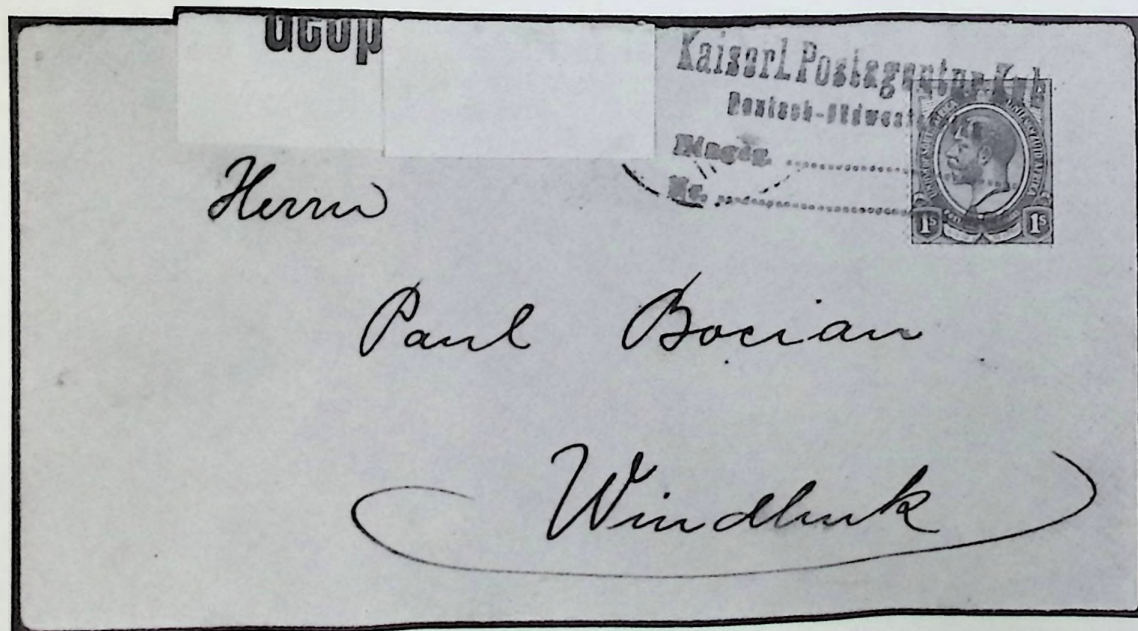 Geop
Kaiserl. Postagentur Kub
Deutsch-Südwest
Eingeg. ............
Nr. ............
1s 1s
Herrn
Paul Bocian
Windhuk